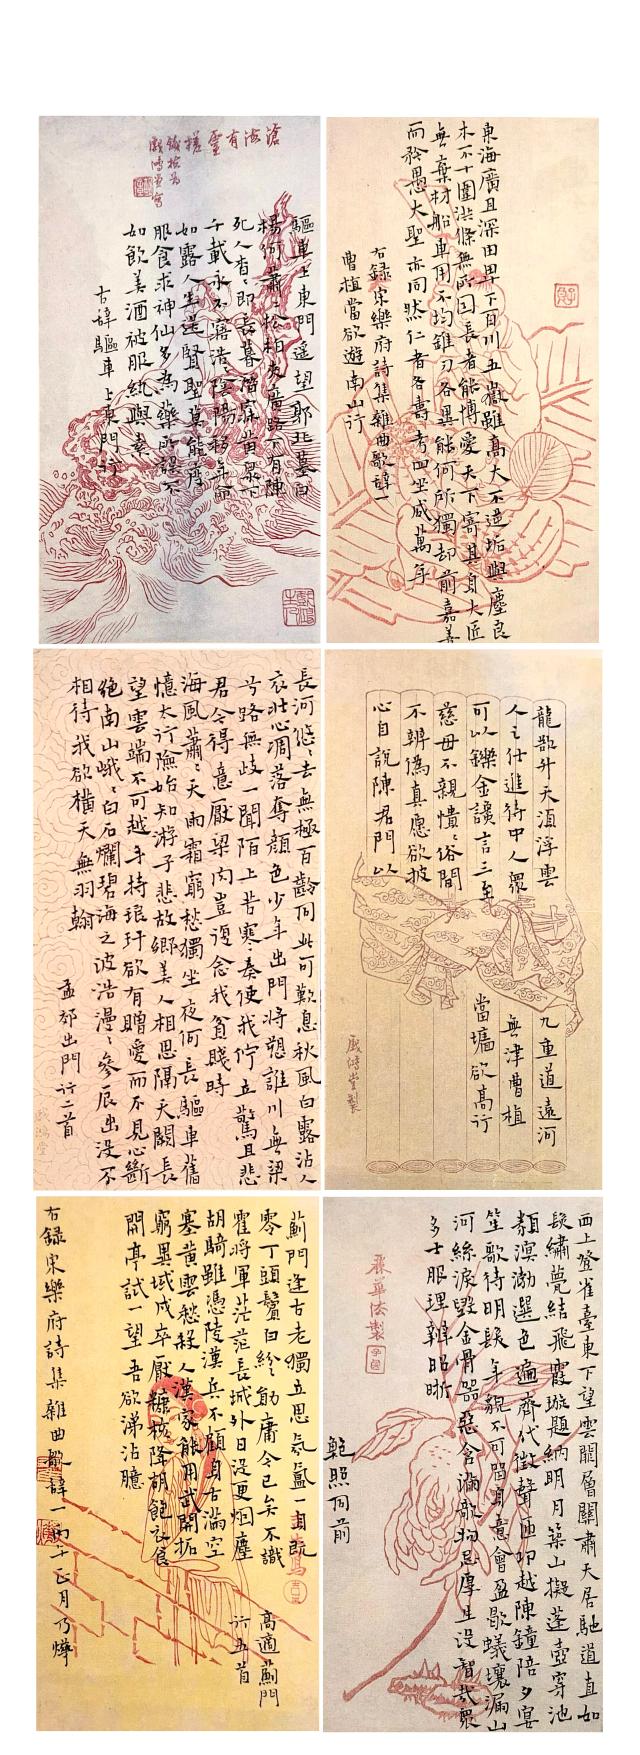 東海廣且深由卑下百川五嶽雖高大不逆垢與塵良
木不十圍洪條無所因長者能博愛天下寄其身大匠
無棄材船車用不均錐刀各異能何所獨却前嘉善
而矜愚大聖亦同然仁者各壽考四坐咸萬年
右錄宋樂府詩集雜曲歌辭一
曹植當欲遊南山行
滄海有靈槎
戲鴻堂寫
驅車上東門遥望郭北墓白
楊何蕭蕭松柏夾廣路下有陳
死人杳杳即長暮潛寐黃泉下
千載永不寤浩浩陰陽移年命
如露人生
賢聖莫能度
服食求神仙多為藥所誤不
如飲美酒被服紈與素
古辭驅車上東門行
龍欲升天須浮雲
人之仕進待中人眾
可以鑠金讒言三至
慈母不親憒憒俗間
不辨偽真愿欲披
心自說陳君門以
九重道遠河
無津曹植
當墻欲高行
戲鴻堂製
長河悠悠去無極百齡同此可歎息秋風白露沾人
衣壯心凋落奪顏色少年出門將愬誰川無梁
兮路無歧一聞陌上苦寒奏使我佇立驚且悲
君今得意厭粱肉豈復念我貧賤時
海風蕭蕭天雨霜窮愁獨坐夜何長驅車舊
憶太行險始知游子悲故鄉美人相思隔天闕長
望雲端不可越手持琅玕欲有贈愛而不見心斷
絕南山峨峨白石爛碧海之波浩漫漫參辰出沒不
相待我欲橫天無羽翰
孟郊出門行二首
西上登雀臺東下望雲闕層閣肅天居馳道直如
髮繡甍結飛霞璇題納明月築山擬蓬壺穿池
類溟渤選色遍齊代徵聲匝邛越陳鐘陪夕宴
笙歌待明發年貌不可留身意會盈歇蟻壤漏山
河絲淚毀金骨器惡含滿欹物忌厚生沒智哉眾
多士服理辯昭晰
鮑照同前
薊門逢古老獨立思氛氳一身既
零丁頭鬢白紛紛勛庸今已矣不識
霍將軍茫茫長城外日沒更煙塵
胡騎雖憑陵漢兵不顧身古滿空
塞黃雲愁殺人漢家能用武開拓
窮異域戍卒厭糠核降胡飽衣食
開亭試一望吾欲涕沾臆
高適薊門
行五首
右錄宋樂府詩集雜曲歌辭一丙午正月乃燁